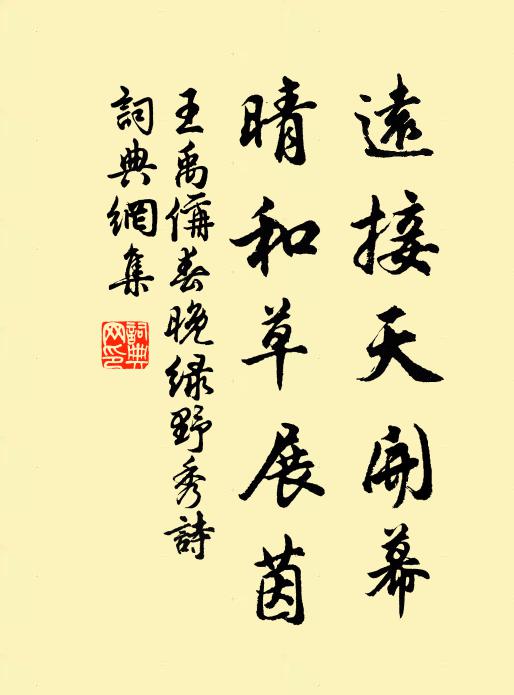 遠接天開幕
晴和草展茵
王禹偁春晚绿野秀詩
詞典網集
詞典網印